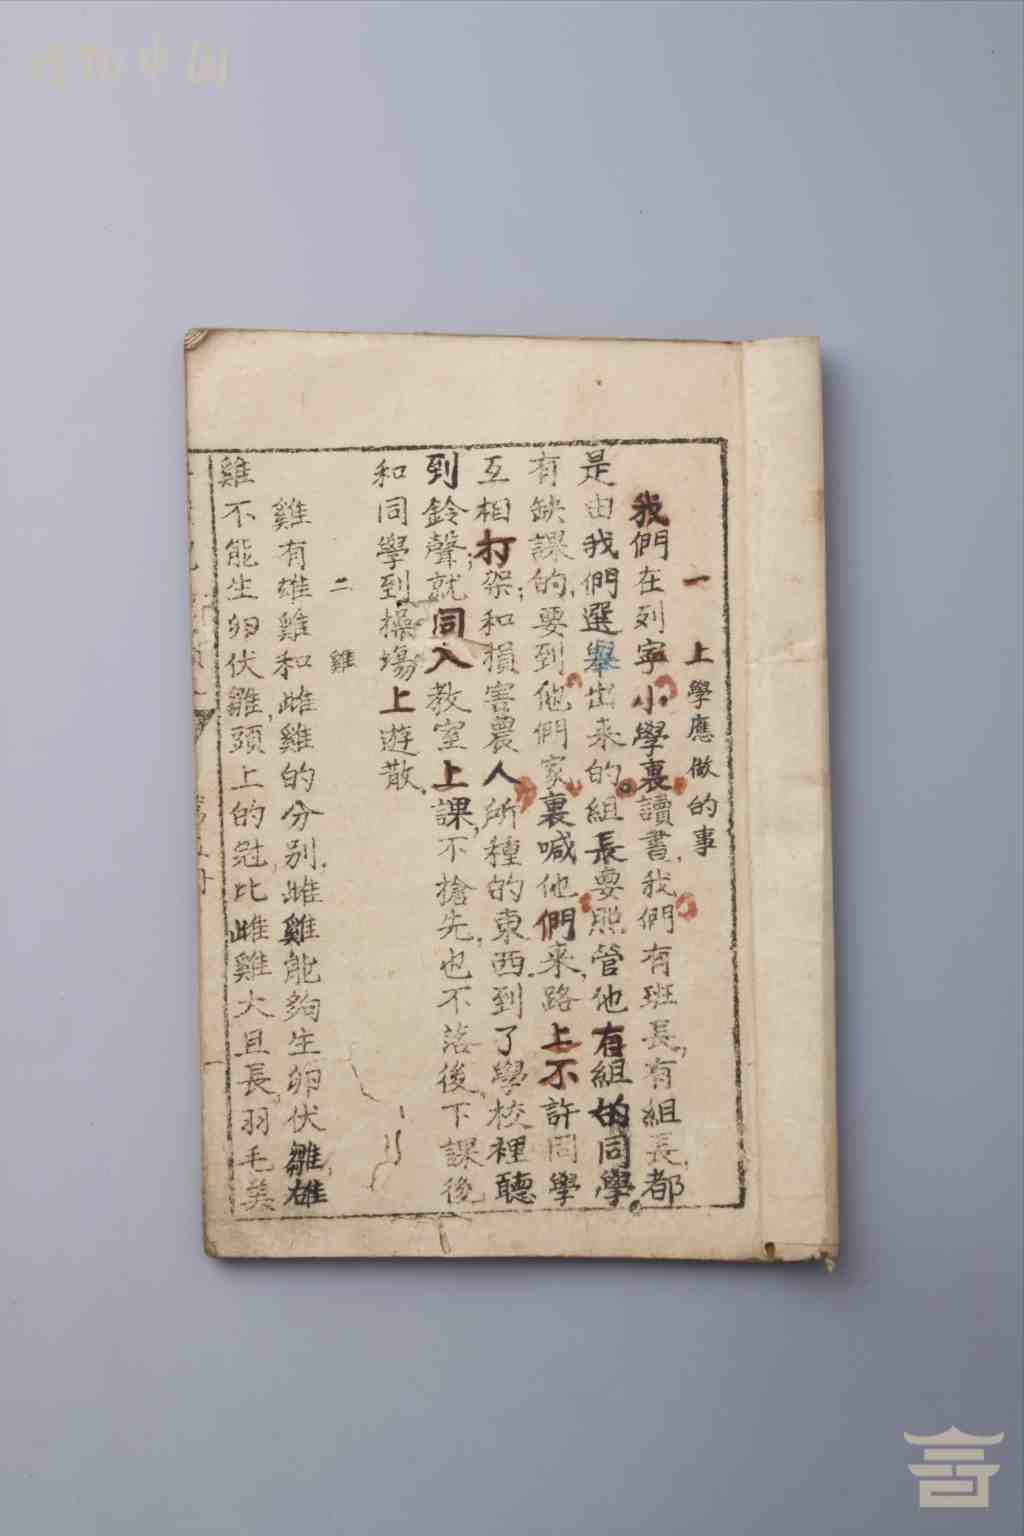 一 上學應做的事
我們在列寧小學裏讀書,我們有班長,有組長,都
是由我們選舉出来的。組長要照管他有組的同學。
有缺課的,要到他們家裏喊他們来,路上不許同學
互相打架;和損害農人所種的東西.到了學校裡聽
到鈴聲;就同入教室上課,不搶先,也不落後,下課後,
和同學到操場上遊散.
二 雞
雞有雄雞和雌雞的分别.雌雞能夠生卵伏雛,雄
雞不能生卵伏雛,頭上的冠,比雌雞大且長,羽毛美